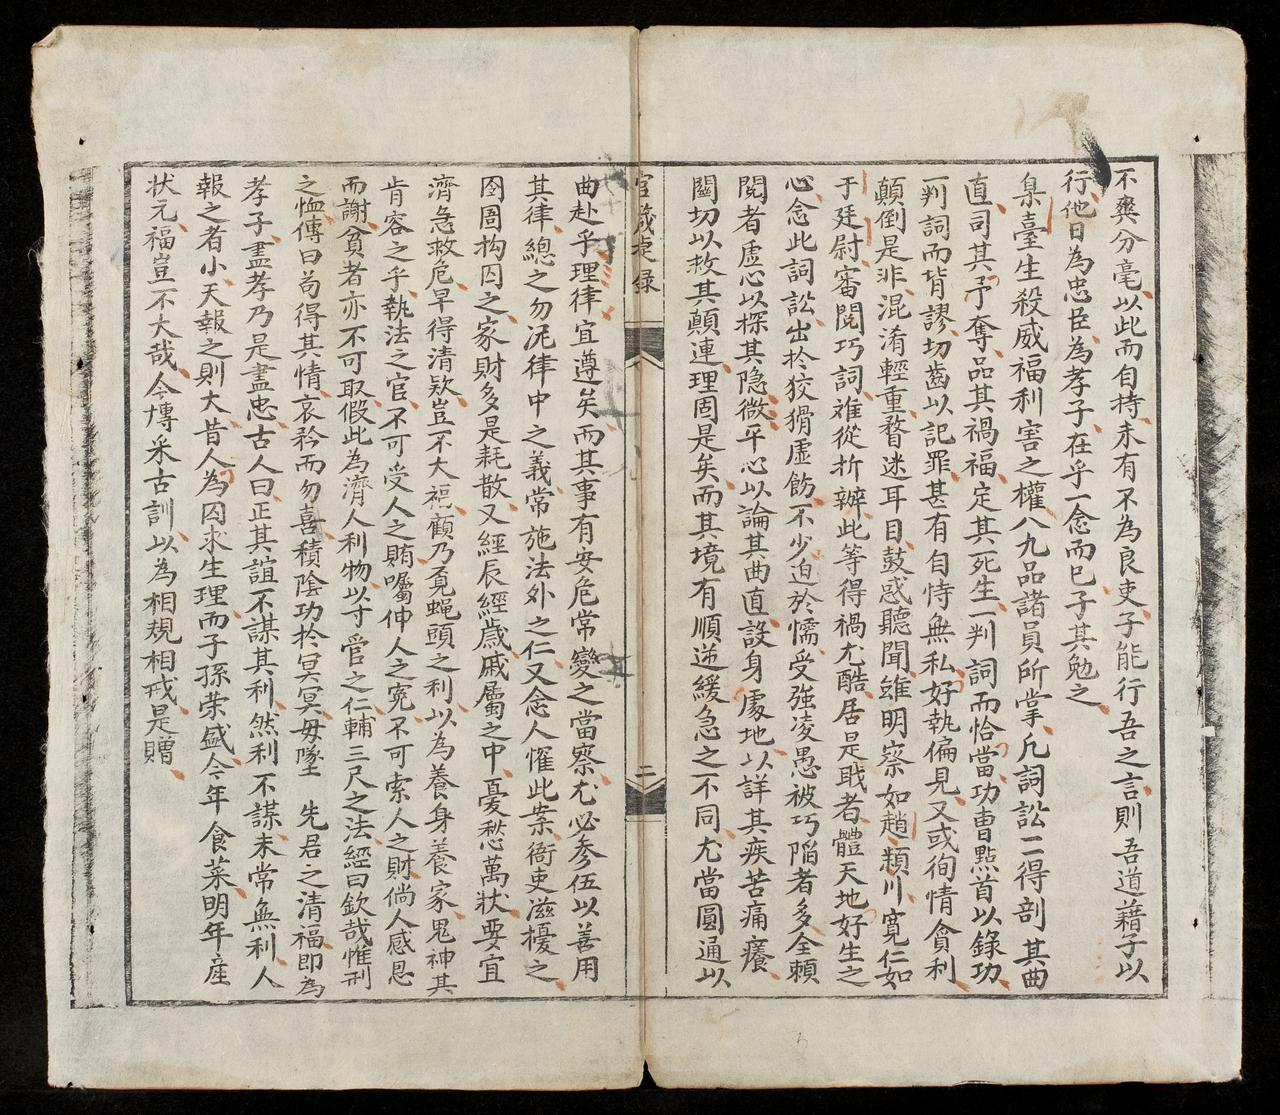 不爽分毫以此而自持未有不為良吏子能行吾之言則吾道藉子以
行他日為忠臣為孝子在乎一念而已子其勉之
臬臺生殺威福利害之權八九品諸員所掌凡詞訟二得剖其曲
直司其予奪品其禍福定其死生一判詞而恰當功曹點首以錄功
一判詞而背謬切齒以記罪甚有自恃無私好執偏見又或徇情貪利
顛倒是非混淆輕重瞀迷耳目鼓惑聽聞雖明察如趙潁川寬仁如
于廷尉審閱巧詞誰從折辦此等得禍尤酷居是戢者體天地好生之
心念此詞訟出於狡猾虛飭不少迫於懦受強凌愚被巧陷者多全賴
閱者虛心以探其隐微平心以論其曲直設身處地以詳其疾苦痛癢
關切以救其顛連理固是矣而其境有順逆緩急之不同尤當圓通以
官箴捷錄
二
曲赴乎理律宜遵矣而其事有安危常變之當察尤必參伍以善用
其律總之勿泥律中之義常施法外之仁又念人懼此案衙吏滋擾之
囹圄拘囚之家財多是耗散又經辰經歲戚屬之中憂愁萬狀要宜
濟急救危早得清欵豈不大福顧乃覔蝇頭之利以為養身養家鬼神其
肯容之乎執法之官不可受人之賄囑伸人之寃不可索人之財倘人感恩
而謝貧者亦不可取假此為濟人利物以寸管之仁輔三尺之法經曰欽哉惟刑
之恤傳曰苟得其情哀矜而勿喜積陰功於冥冥毋墜 先君之清福即為
孝子盡孝乃是盡忠古人曰正其誼不謀其利然利不謀未常無利人
報之者小天報之則大昔人為囚求生理而子孫荣盛今年食菜明年産
状元福豈不大哉今博采古訓以為相規相戒是贈